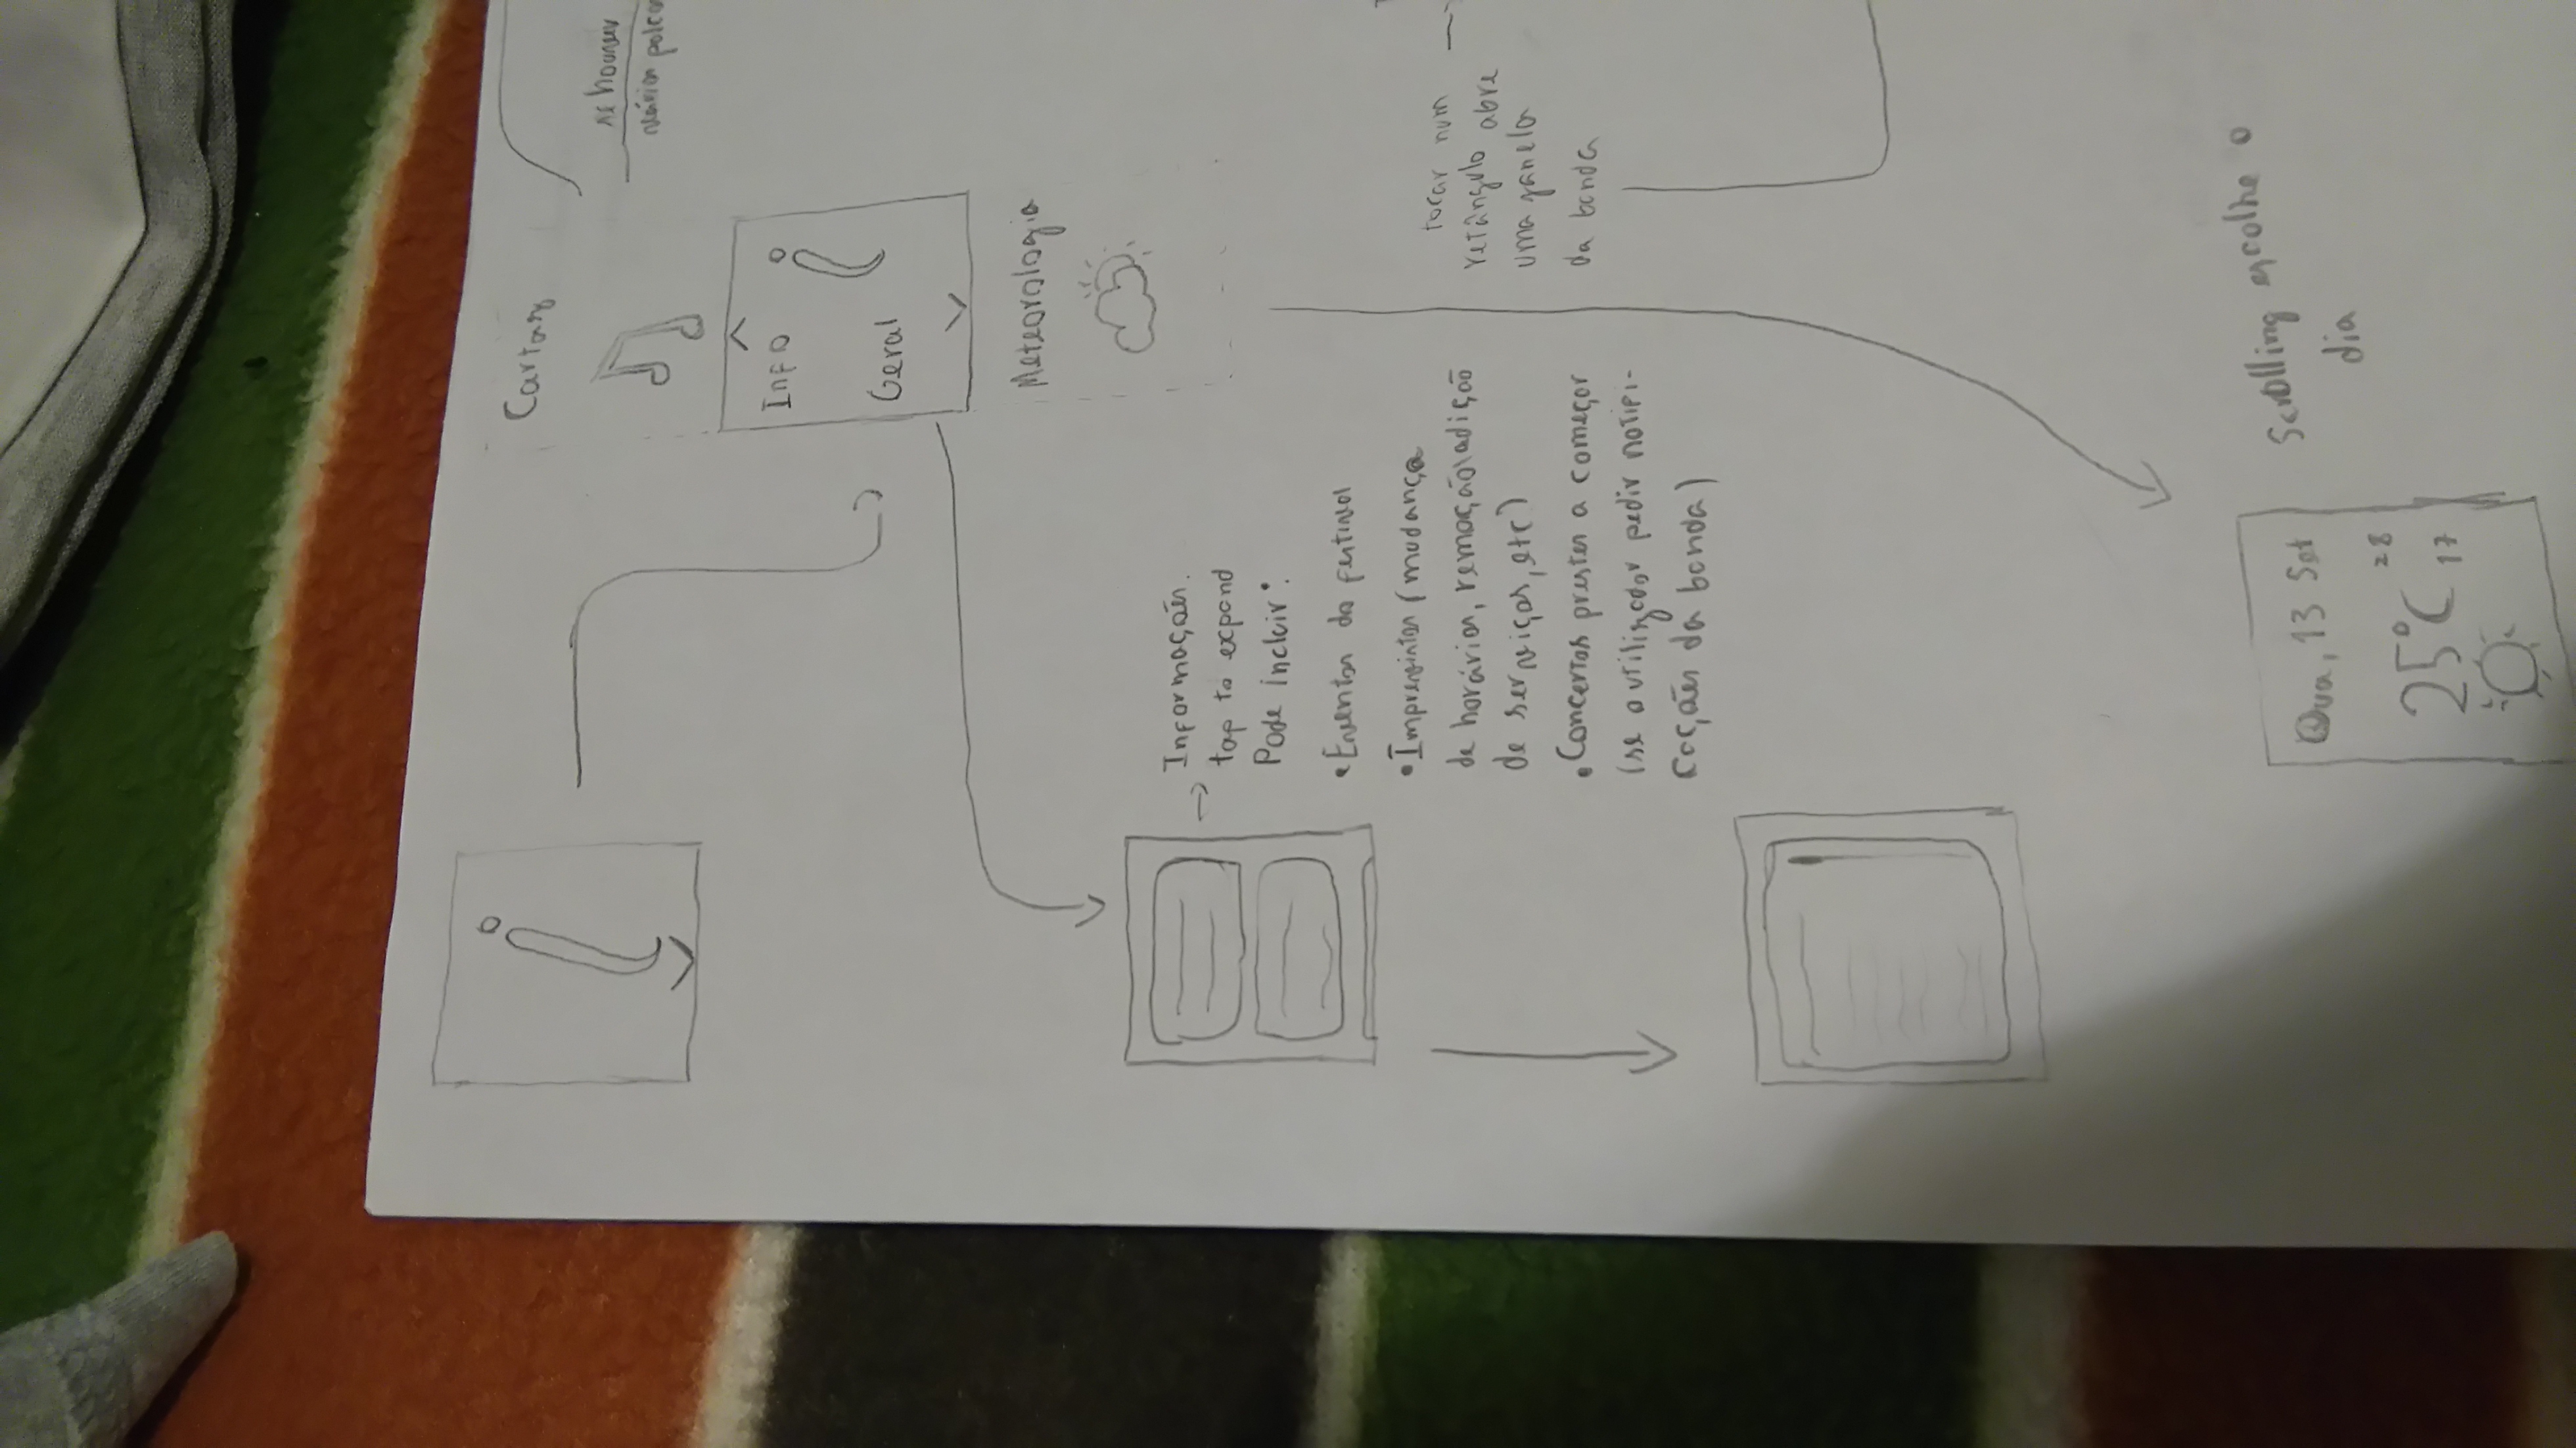 Cartaz
se houver
vários palcos
Info
Geral
Meteorologia
Informações.
tap to expand
Pode incluir:
• Eventos do festival
• Imprevistos (mudança
de horários, remoção\adição
de serviços, etc)
• Concertos prestes a começar
(se o utilizador pedir notifi-
cações da banda)
tocar num
retângulo abre
uma janela
da banda
Qua, 13 Set
25°C
28
17
Scrolling escolhe o
dia